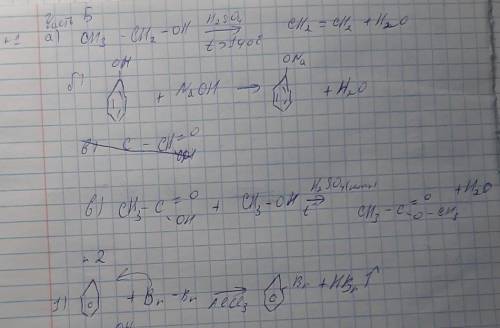 Часть Б
№1 а) CH₃ – CH₂ – OH H₂SO₄ → t>140° CH₂ = CH₂ + H₂O
б) OH + NaOH → ONa + H₂O
в) C – CH = O OH
в) CH₃ – C = O – OH + CH₃ – OH H₂SO₄(конц) → t CH₃ – C = O – O – CH₃ + H₂O
№2
1) + Br – Br → AlCl₃ Br + HBr↑
OH